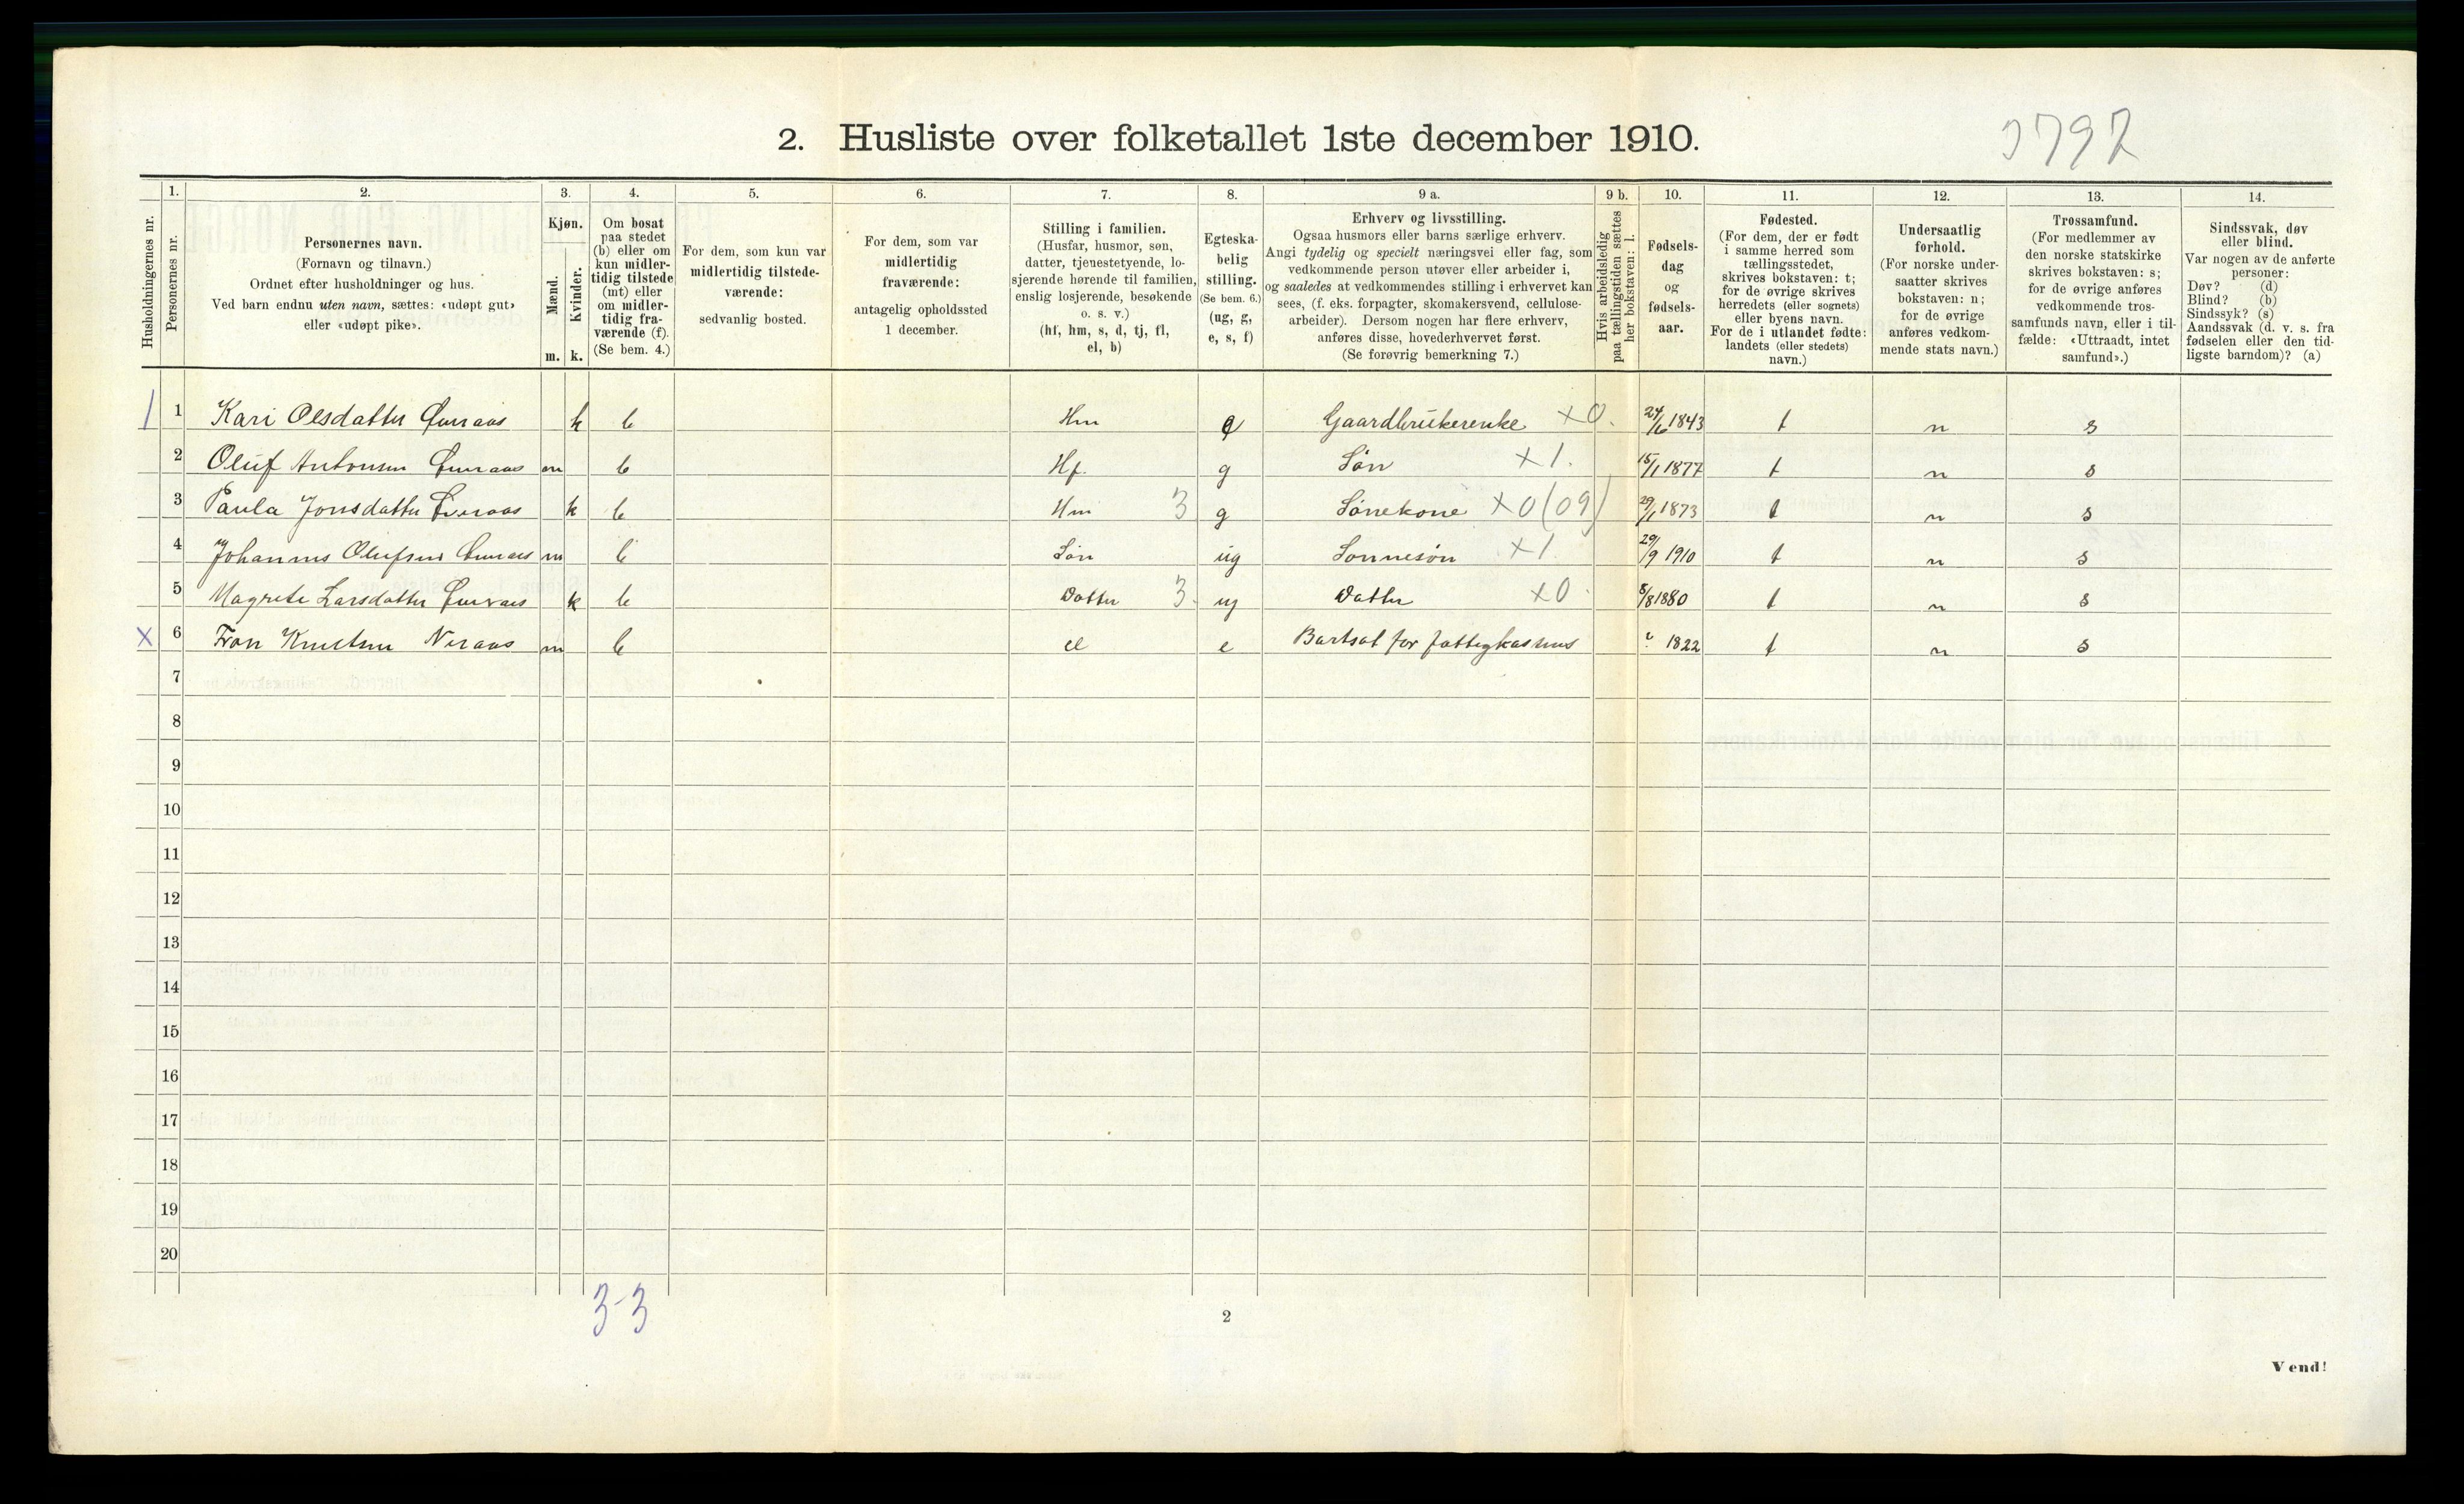 2. Husliste over folketallet 1ste december 1910.
Husholdningernes nr.
1.
Personernes nr.
2.
Personernes navn.
(Fornavn og tilnavn.)
Ordnet efter husholdninger og hus.
Ved barn endnu uten navn, sættes: «udøpt gut»
eller «udøpt pike».
3.
Kjøn.
Mænd.
Kvinder.
m. k.
4.
Om bosat
paa stedet
(b) eller om
kun midler-
tidig tilstede
(mt) eller
om midler-
tidig fra-
værende (f).
(Se bem. 4.)
5.
For dem, som kun var
midlertidig tilstede-
værende:
sedvanlig bosted.
6.
For dem, som var
midlertidig
fraværende:
antagelig opholdssted
1 december.
7.
Stilling i familien.
(Husfar, husmor, søn,
datter, tjenestetyende, lo-
sjerende hørende til familien,
enslig losjerende, besøkende
o. s. v.)
(hf, hm, s, d, tj, fl,
el, b)
8.
Egteska-
belig
stilling.
(Se bem. 6.)
(ug, g,
e, s, f)
9 a.
Erhverv og livsstilling.
Ogsaa husmors eller barns særlige erhverv.
Angi tydelig og specielt næringsvei eller fag, som
vedkommende person utøver eller arbeider i,
og saaledes at vedkommendes stilling i erhvervet kan
sees, (f. eks. forpagter, skomakersvend, cellulose-
arbeider). Dersom nogen har flere erhverv,
anføres disse, hovederhvervet først.
(Se forøvrig bemerkning 7.)
9 b.
Hvis arbeidsledig
paa tællingstiden sættes
her bokstaven: l.
10.
Fødsels-
dag
og
fødsels-
aar.
11.
Fødested.
(For dem, der er født
i samme herred som
tællingsstedet,
skrives bokstaven: t;
for de øvrige skrives
herredets (eller sognets)
eller byens navn.
For de i utlandet fødte:
landets (eller stedets)
navn.)
12.
Undersaatlig
forhold.
(For norske under-
saatter skrives
bokstaven: n;
for de øvrige
anføres vedkom-
mende stats navn.)
13.
Trossamfund.
(For medlemmer av
den norske statskirke
skrives bokstaven: s;
for de øvrige anføres
vedkommende tros-
samfunds navn, eller i til-
fælde: «Uttraadt, intet
samfund».)
14.
Sindssvak, døv
eller blind.
Var nogen av de anførte
personer:
Døv? (d)
Blind? (b)
Sindssyk? (s)
Aandssvak (d. v. s. fra
fødselen eller den tid-
ligste barndom)? (a)
1 1 Kari Olsdatter k b Hm Gaardbrukerenke x0. 24/6 1843 t n s
2 Oluf Antonsen m b Hf. g Søn x1. 15/1 1877 t n s
3 Paula Jonsdatter k b Hm 3 g Sønekone x0(09) 29/1 1873 t n s
4 Johannes Olufsen m b Søn ug Sonnesøn x1. 29/9 1910 t n s
5 Magrete Larsdatter k b Datter 3. ug Datter x0. 8/8 1880 t n s
x 6 Knutsen Neraas m b el e Bortsat for fattigkassens 1822 t n s
7
8
9
10
11
12
13
14
15
16
17
18
19
20
3-3
2
Vend!